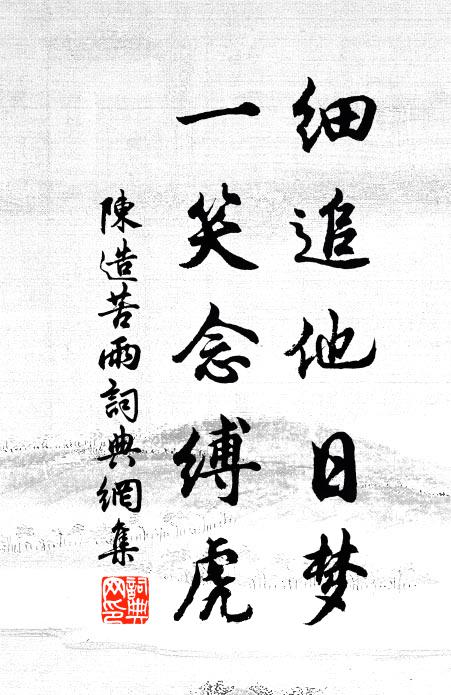 细追他日梦
一笑念缚虎
陳造苦雨詞典網集
詞典网印